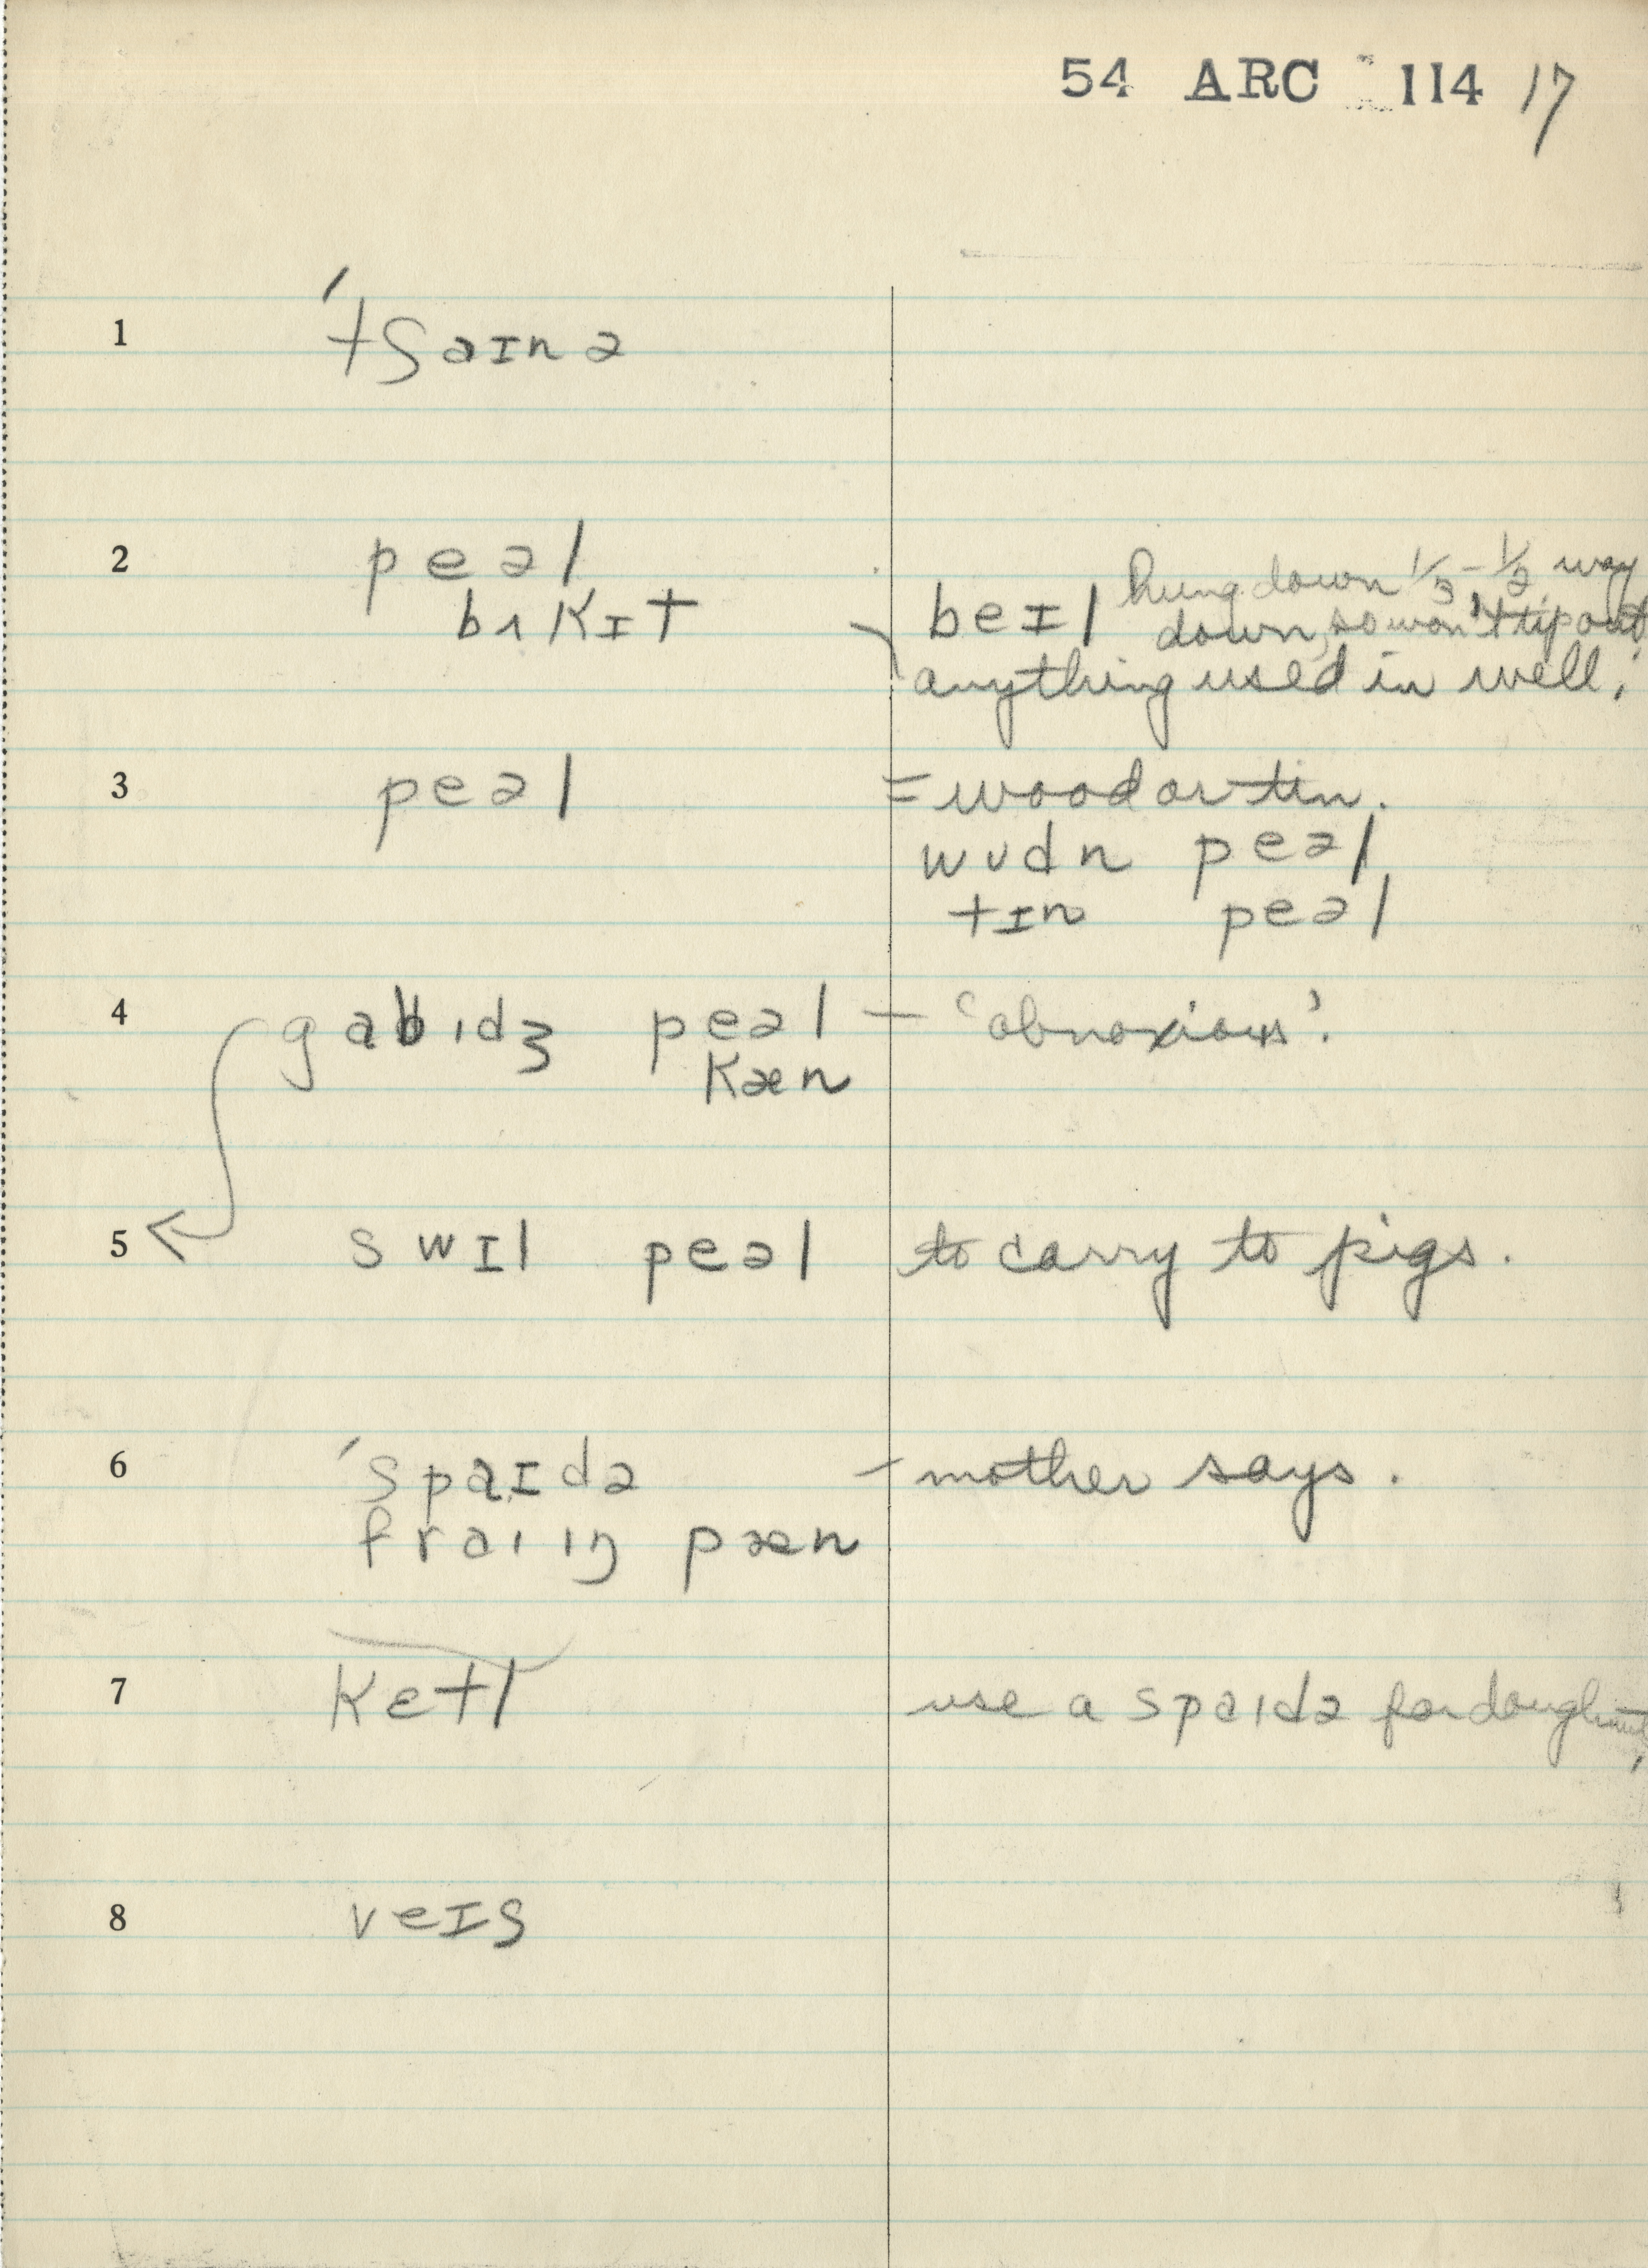 54 ARC 114 17
1 ˈtʃaɪnə
2 peəl
bʌkɪt
beɪl hung down 1/3 - 1/2 way
down, so won't tip out
anything used in well.
3 peəl = wood or tin.
wʊdn peəl
tɪn peəl
4 gabɪdʒ peəl — 'obnoxious'.
kæn
5 swɪl peəl to carry to pigs.
6 ˈspaɪdə — mother says.
fraɪɪŋ pæn
7 ketl use a spaɪdə for doughnuts
8 veɪs